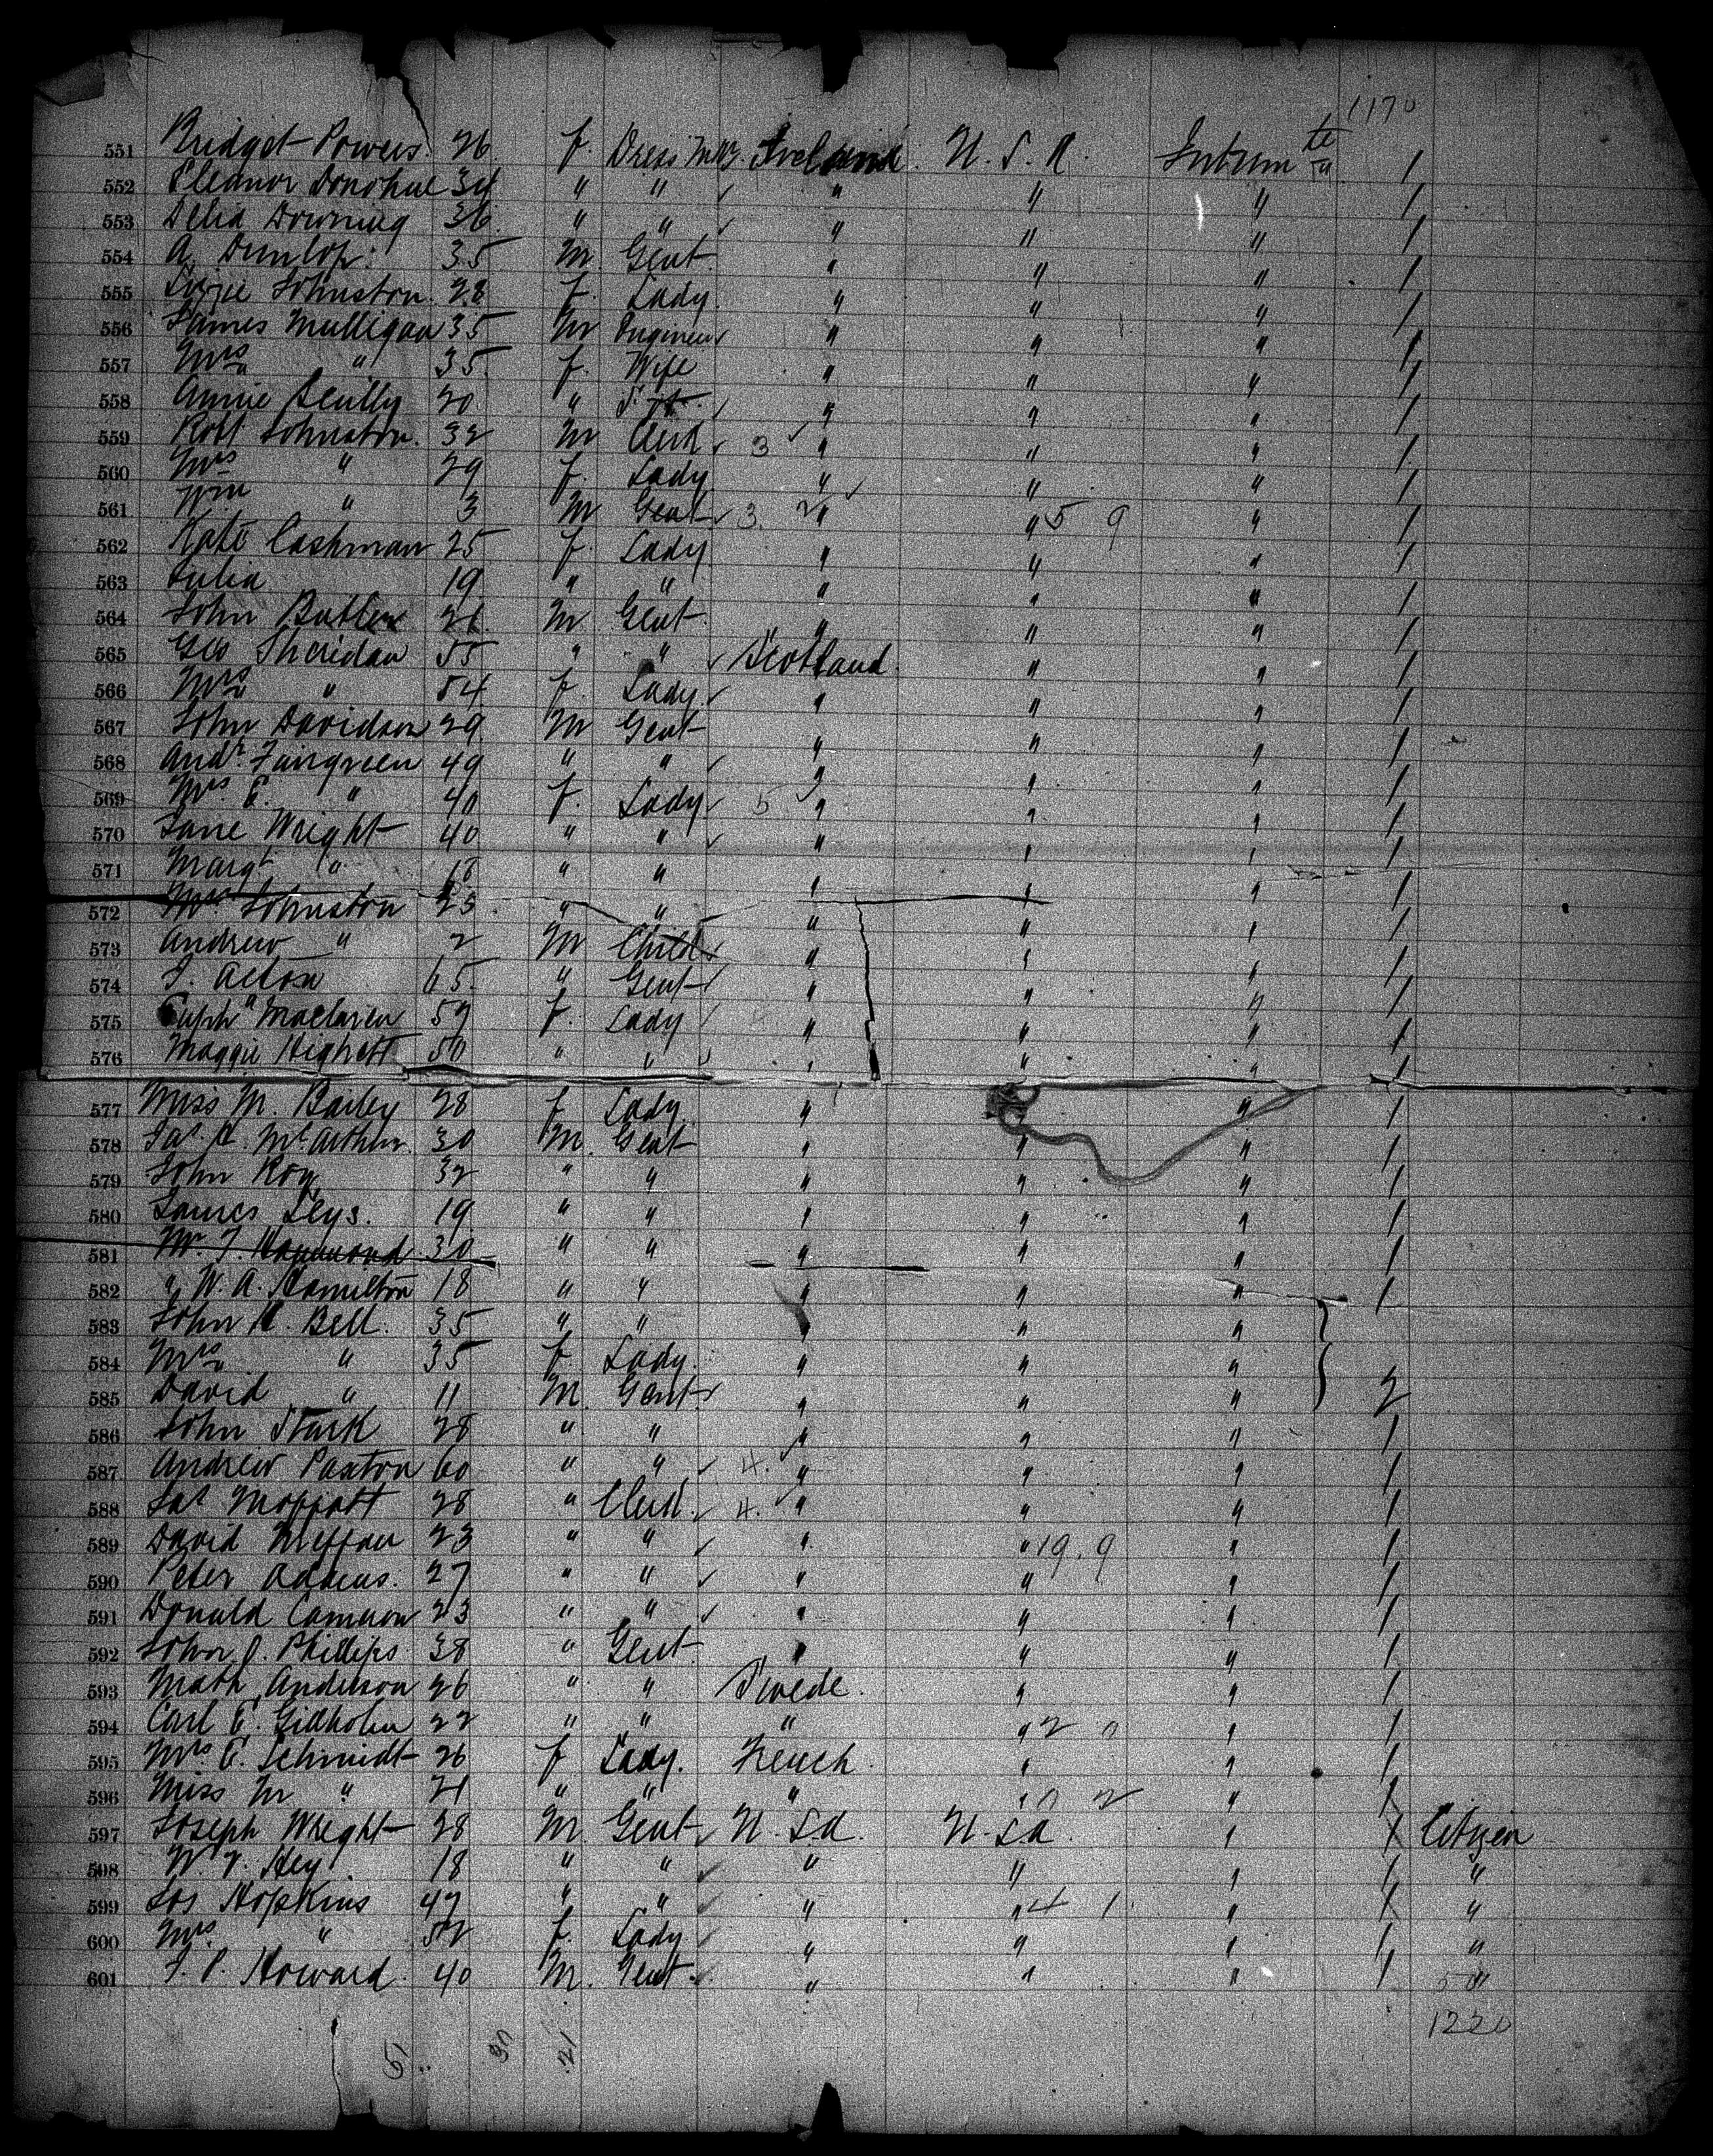 1170
551 Bridget Powers. 26 f. Dress Mkr. Ireland. U. S. A. Interm te 1
552 Eleanor Donohue 34 " " " " " 1
553 Delia Downing 36 " " " " " 1
554 A. Dunlop. 35 M. Gent. " " " 1
555 Lizzie Johnston. 28 f. Lady. " " " 1
556 James Mulligan 35 M Engineer " " " 1
557 Mrs " 35. f. Wife " " " 1
558 Annie Scully 20 " " " " 1
559 Robt Johnston. 32 M Clerk 3 " " " 1
560 Mrs " 29 f. Lady " " " 1
561 Wm " 3 M Gent 3. " " 5 9 " 1
562 Kate Cashman 25 f. Lady " " " 1
563 Julia 19 " " " " " 1
564 John Butler 21 M Gent. " " " 1
565 Geo Sheridan 55 " " Scotland. " " 1
566 Mrs " 54 f. Lady. " " " 1
567 John Davidson 29 M Gent " " " 1
568 Andr. Fairgreen 49 " " " " " 1
569 Mrs E. " 40 f. Lady 5 " " " 1
570 Jane Wright 40 " " " " " 1
571 Margt " 18 " " " " " 1
572 Mrs Johnston 25. " " " " " 1
573 Andrew " 2 M Child " " " 1
574 J. Acton 65. " Gent " " " 1
575 Euph" Maclaren 59 f. Lady " " " 1
576 Maggie 50 " " " " " 1
577 Miss M. Bailey 28 f Lady " " 1
578 Jas. A. McArthur. 30 M. Gent " " " 1
579 John Roy 32 " " " " " 1
580 James Leys. 19 " " " " " 1
581 Mr. T. Hammond 30 " " " " " 1
582 " W. A. Hamilton 18 " " " " " 1
583 John K. Bell. 35 " " " " "
584 Mrs " 35 f. Lady. " " "
585 David " 11 M. Gent " " " 2
586 John Stark 28 " " " " " 1
587 Andrew Paxton 60 " " 4. " " " 1
588 Jas Moffatt 28 " Clerk. 4. " " " 1
589 David Meffan 23 " " " " 19. 9 " 1
590 Peter Adams. 27 " " " " " 1
591 Donald Cameron 23 " " " " " 1
592 John J. Phillips 38 " Gent. " " " 1
593 Math Anderson 26 " " Swede. " " 1
594 Carl E. Gidholm 22 " " " " 2 0 " 1
595 Mrs E. Schmidt 26 f Lady. French. " " 1
596 Miss M " 21 " " " " 0 2 " 1
597 Joseph Wright 28 M. Gent U. S. A. U. S. A. " 1 Citizen
598 W. J. Hey 18 " " " " " 1 "
599 Jos Hopkins 47 " " " " 4 1. " 1 "
600 Mrs. " 52 f. Lady " " " 1 "
601 J. P. Howard. 40 M. Gent. " " " 1 "
50
1220
5 30 21